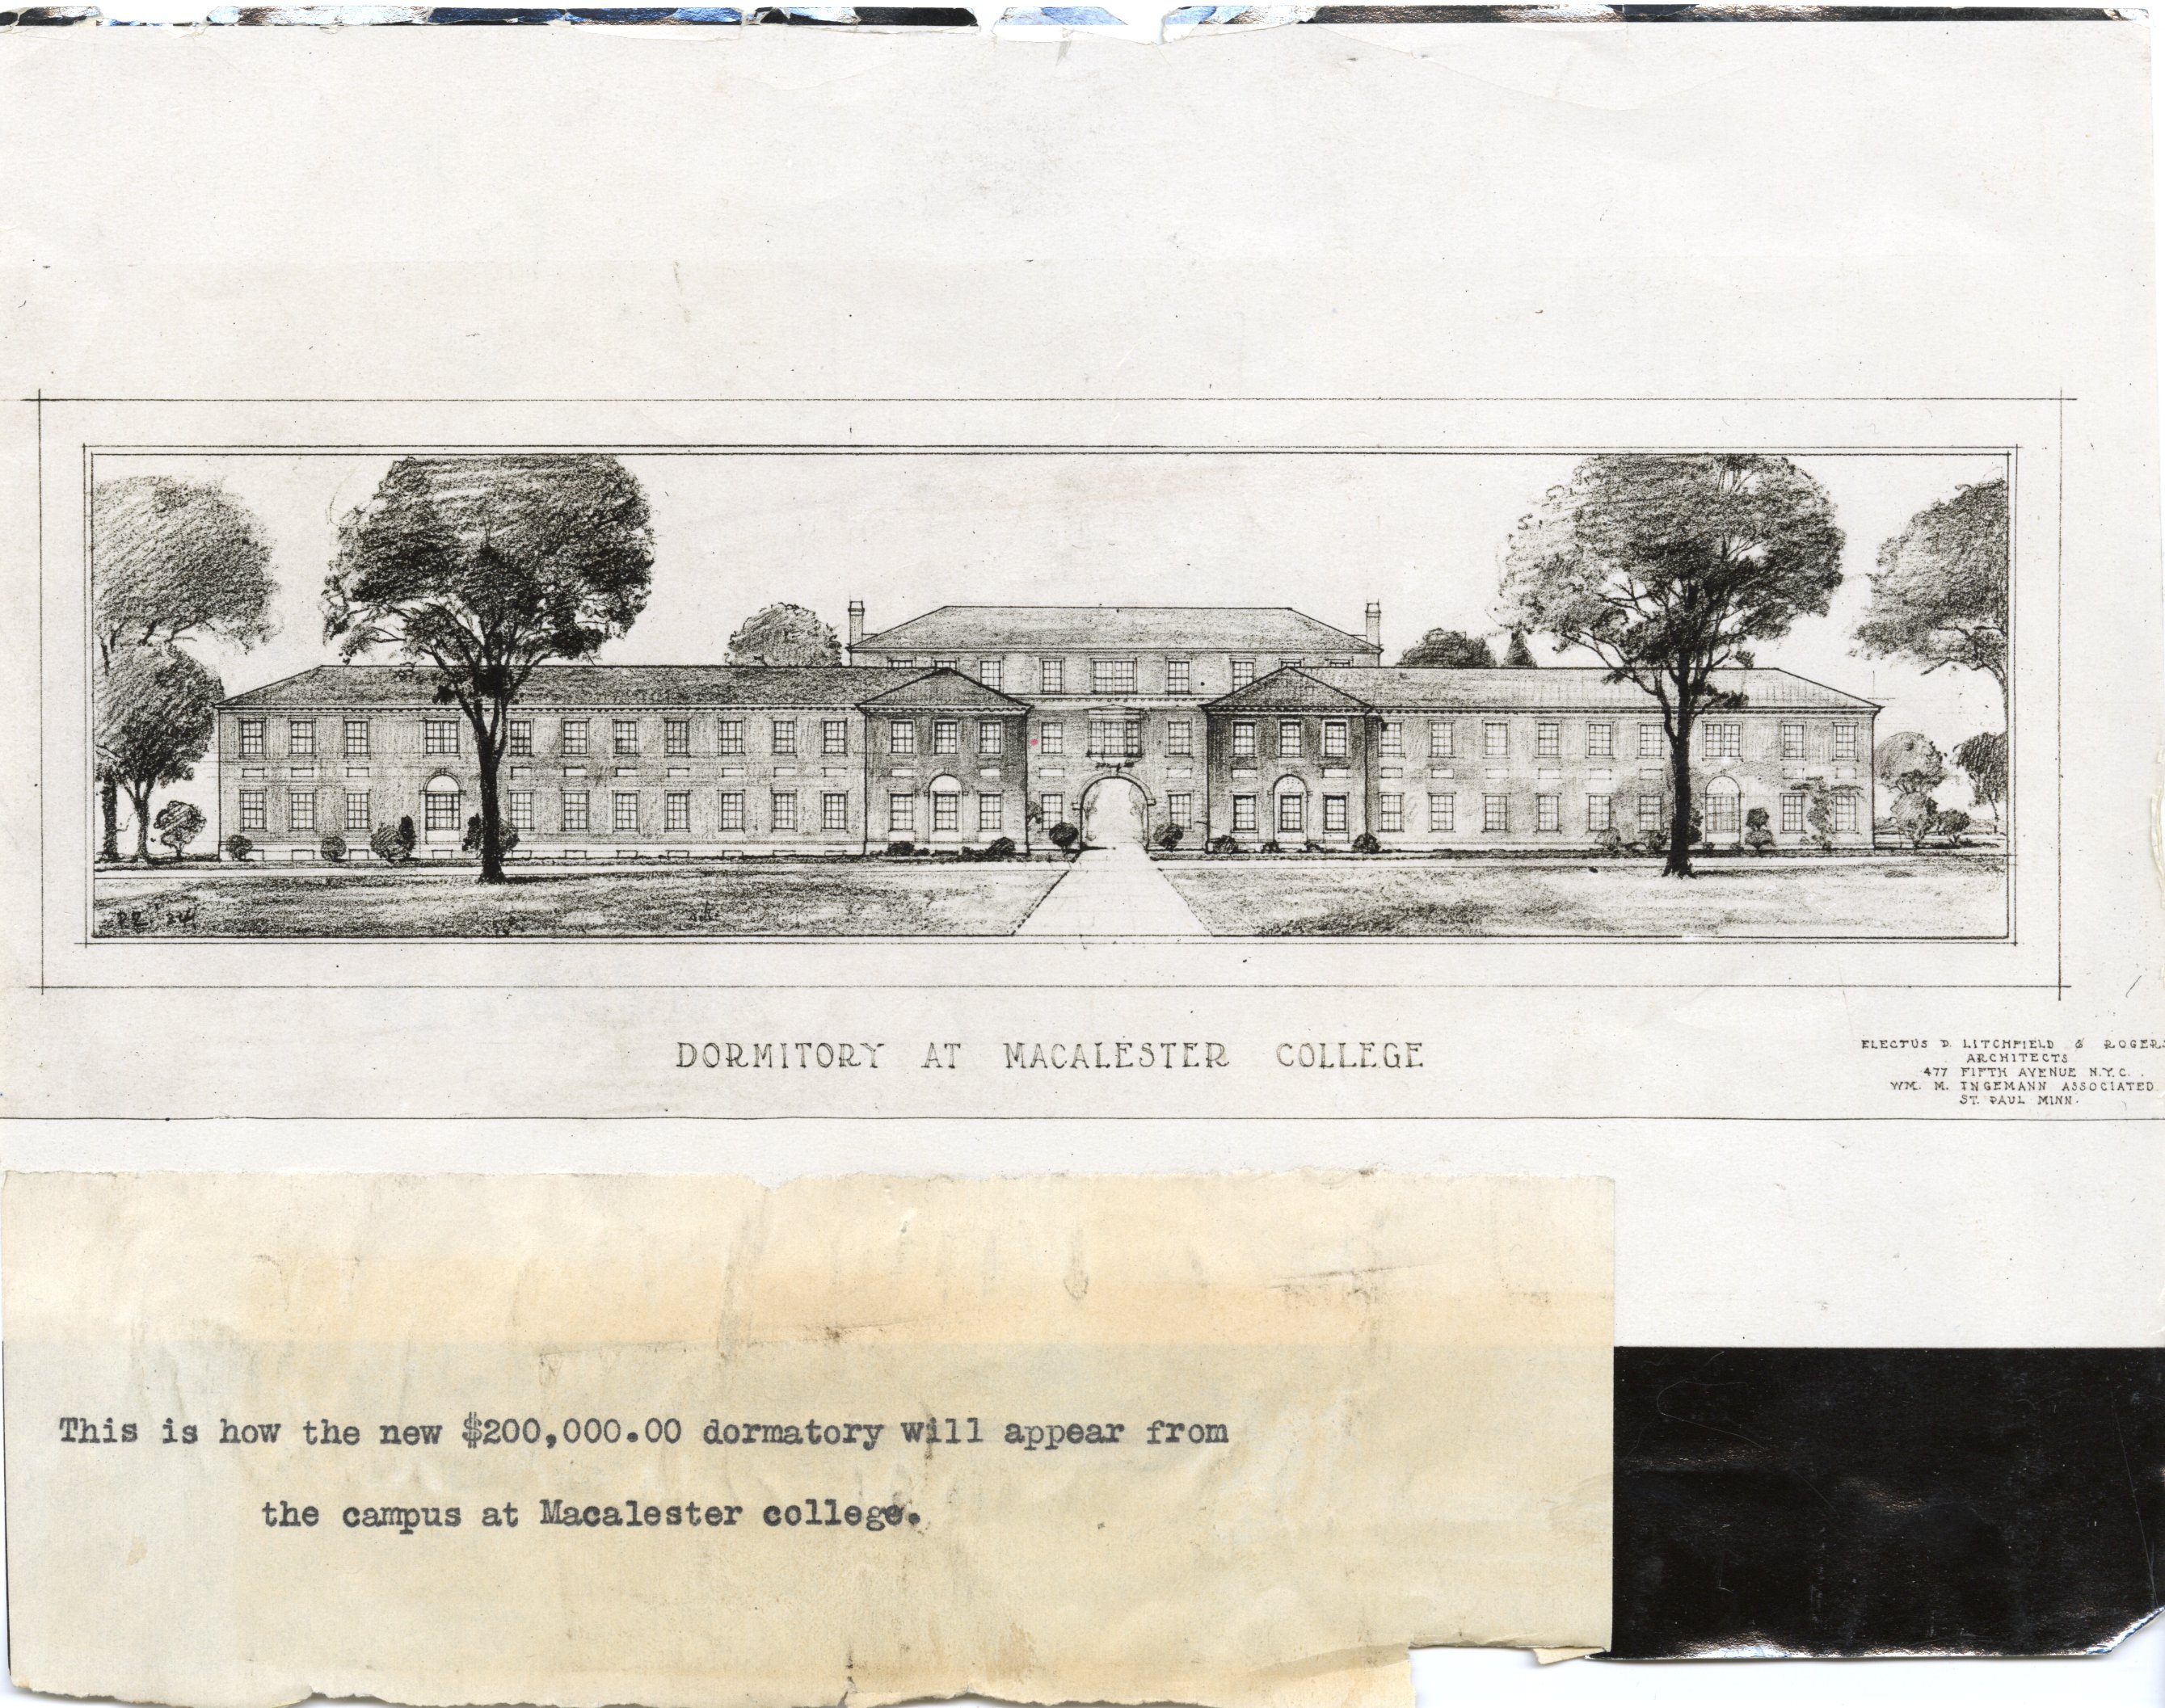 DORMITORY AT MACALESTER COLLEGE
ELECTUS D. LITCHFIELD & ROGERS
ARCHITECTS
477 FIFTH AVENUE N.Y.C.
WM. M. INGEMANN ASSOCIATED
ST. PAUL MINN.
This is how the new $200,000.00 dormatory will appear from
the campus at Macalester college.